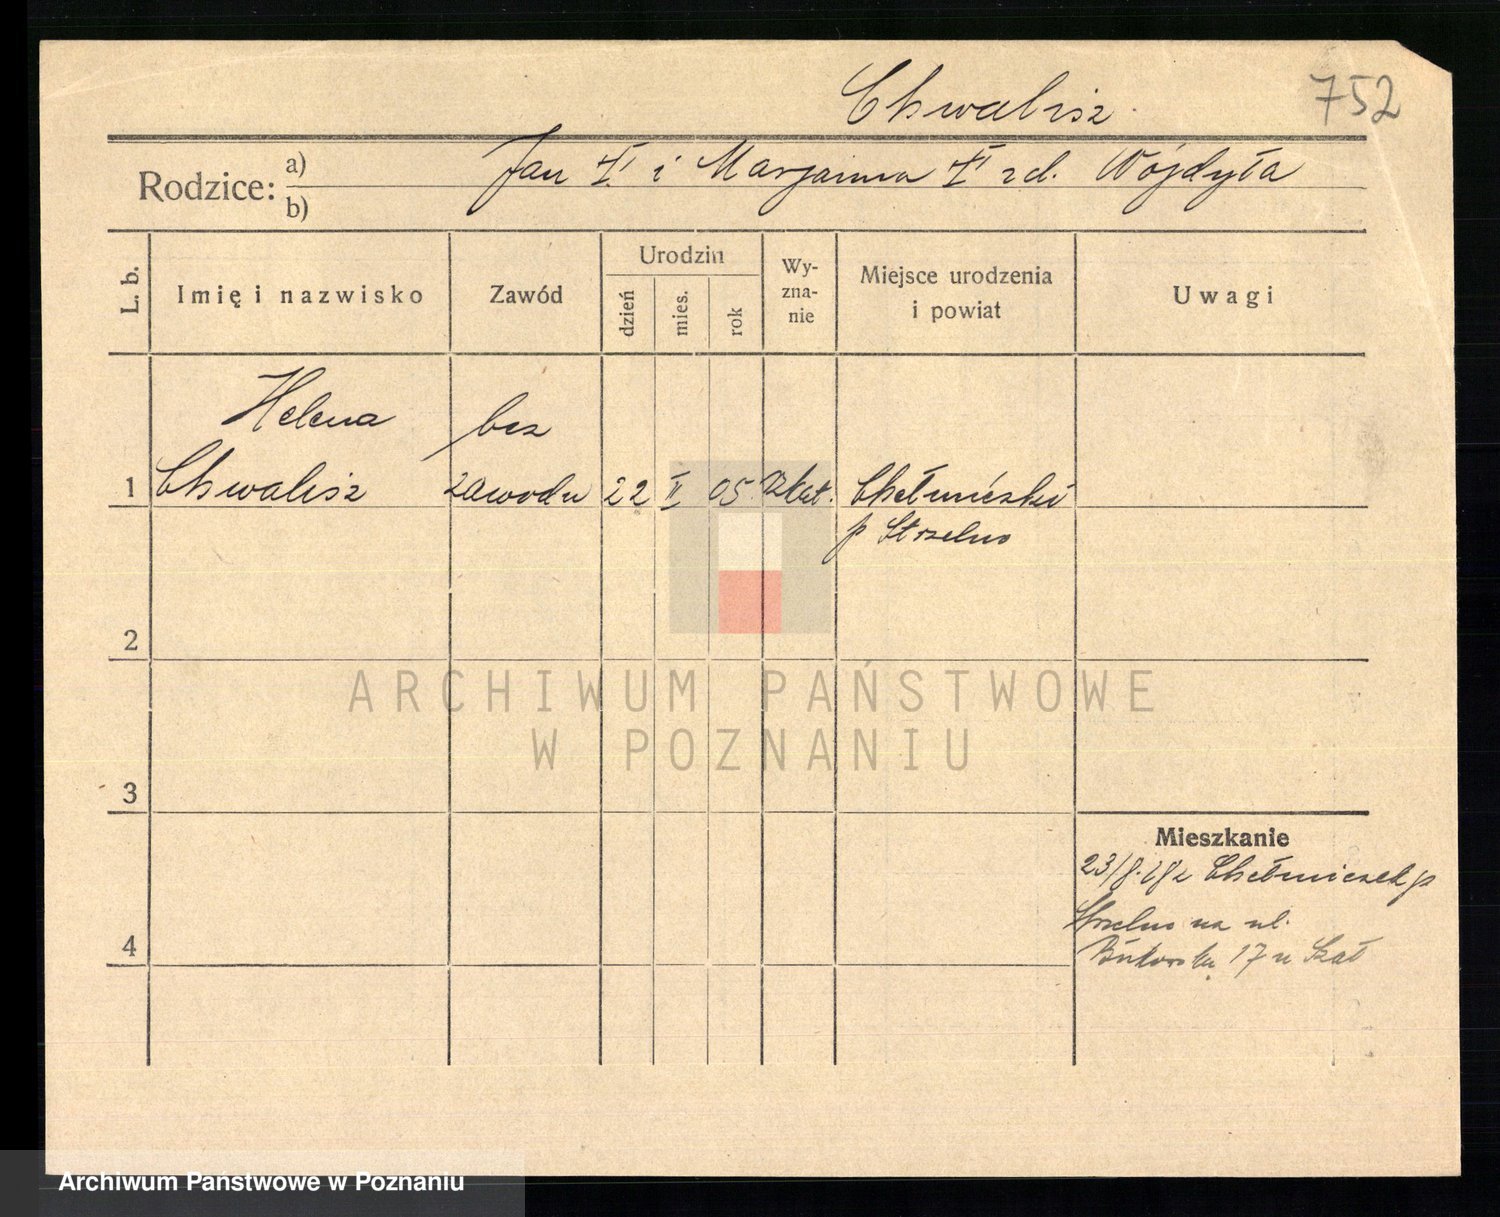 Chwalisz 752
Rodzice: a) b) Jan i Marjanna zd. Wojdyła
L. b.
Imię i nazwisko
Zawód
Urodzin
dzień
mies.
rok
Wy-
zna-
nie
Miejsce urodzenia
i powiat
Uwagi
Helena bez
1 Chwalisz zawodu 22 II 05. Rzkat. Chełmiczki
p Strzelno
2
ARCHIWUM PAŃSTWOWE
W POZNANIU
3
Mieszkanie
23/8. Chełmiczek p
Strzelno na ul.
4 Bukowska 17 u
Archiwum Państwowe w Poznaniu